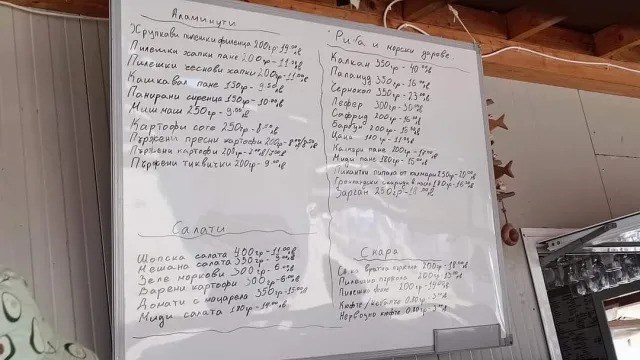 Аламинути
Хрупкави пилешки филенца 200гр-14.00лв
Пилешки хапки пане 200гр-11.00лв
Пилешки чеснови хапки 200гр-11.00лв
Кашкавал пане 150гр-9.50лв
Панирани сирена 150гр-10.00лв
Миш маш 250гр-9.50лв
Картофи соте 250гр-8.50
Пържени пресни картофи 200гр-
Пържени картофи 200г-
Пържени тиквички 200гр-9.00лв
Салати
Шопска салата 400гр-11.00лв
Мешана салата 350гр-9.00лв
Зеле моркови 300гр-6.00лв
Варени картофи 300гр-6.00лв
Домати с моцарела 350гр-15.00лв
Миди салата 180гр-14.00лв
Риба и морски дарове
Калкан 350гр-40.00лв
Паламуд 350гр-16.00лв
Чернокоп 350гр-23лв
Лефер 300гр-30.00лв
Сафрид 200гр-15.00лв
Барбун 200гр-15.00лв
Цаца 180гр-11.00лв
Калмари пане 200гр-
Миди пане 180гр-15.00лв
Пикантни пипала от калмари 250гр-20.00лв
Гренландски скариди в масло 180гр-16.00лв
Зарган 250гр-18.00лв
Скара
Св.ка вратна пържола 200гр-18.00лв
Пилешка пържола 200гр-15.00лв
Пилешко филе 200гр-14.00лв
Кюфте/кебапче 0.80гр-
Нервозно кюфте 0.80гр-